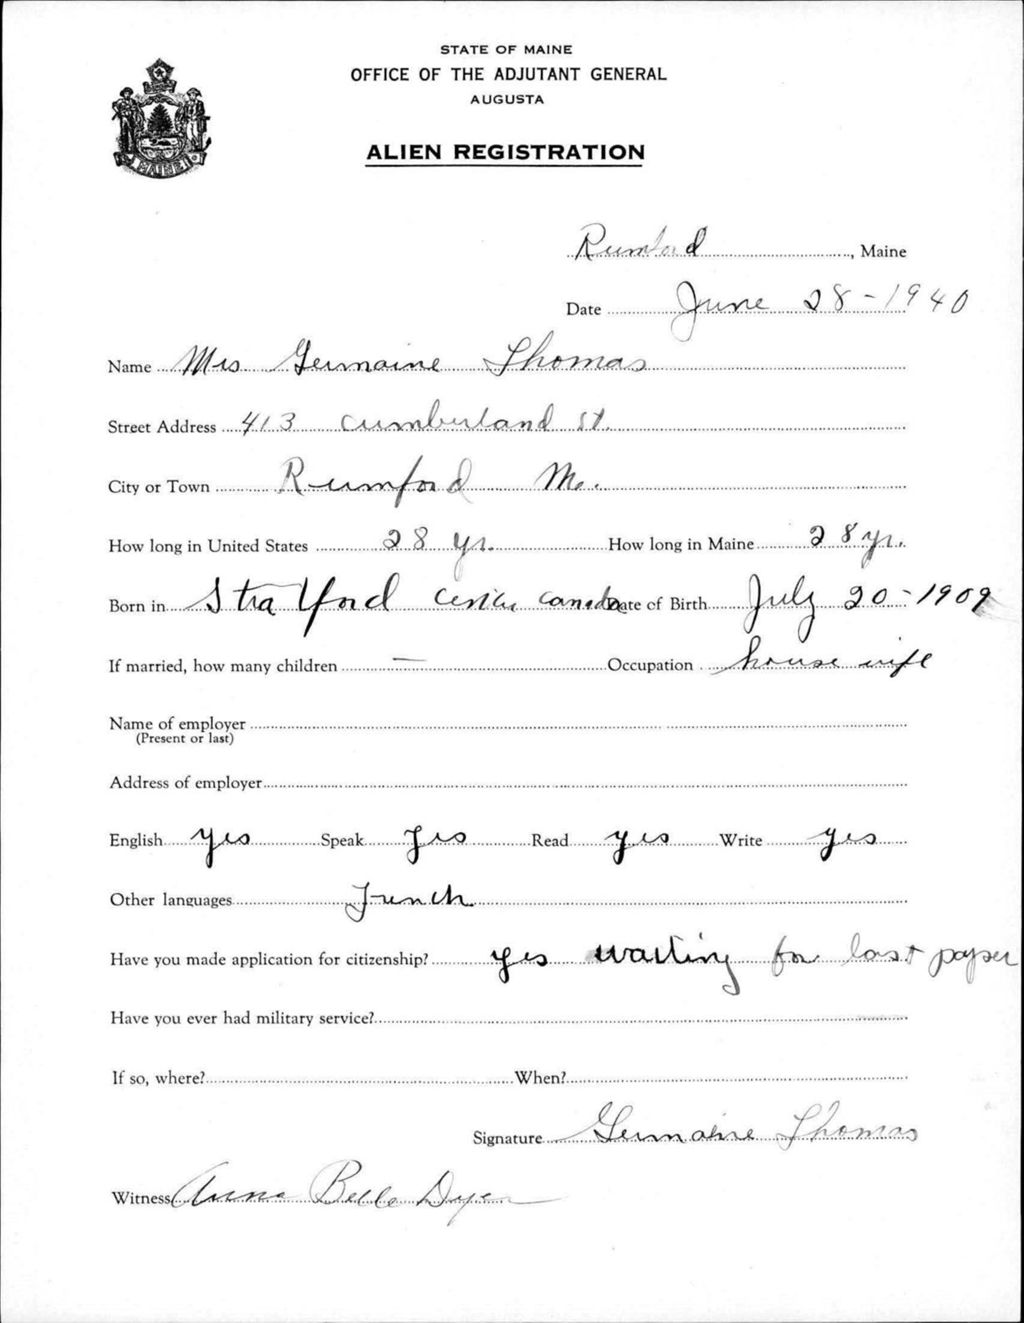 STATE OF MAINE
OFFICE OF THE ADJUTANT GENERAL
AUGUSTA
ALIEN REGISTRATION
MAINE
Rumford, Maine
Date June 28-1940
Name Mrs Germaine Thomas
Street Address 413 Cumberland St.
City or Town Rumford Me.
How long in United States 28 yr. How long in Maine 28 yr.
Born in Stratford canada Date of Birth July 20-1909
If married, how many children — Occupation house wife
Name of employer
(Present or last)
Address of employer
English yes Speak yes Read yes Write yes
Other languages French
Have you made application for citizenship? yes waiting for last paper
Have you ever had military service?
If so, where? When?
Signature Germaine Thomas
Witness Anna Belle Dyer